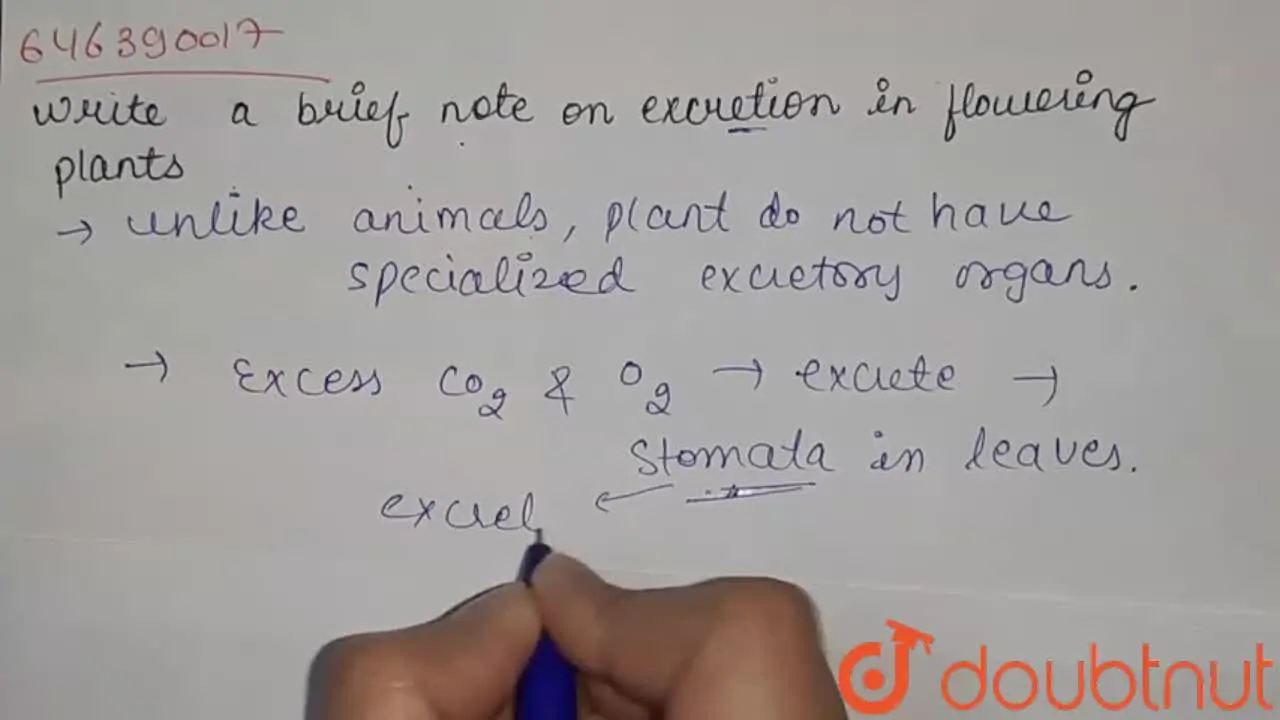 646390017
write a brief note on excretion in flowering
plants
→ unlike animals, plant do not have
specialized excretory organs.
→ Excess CO2 & O2 → excrete →
stomata in leaves.
excret
doubtnut